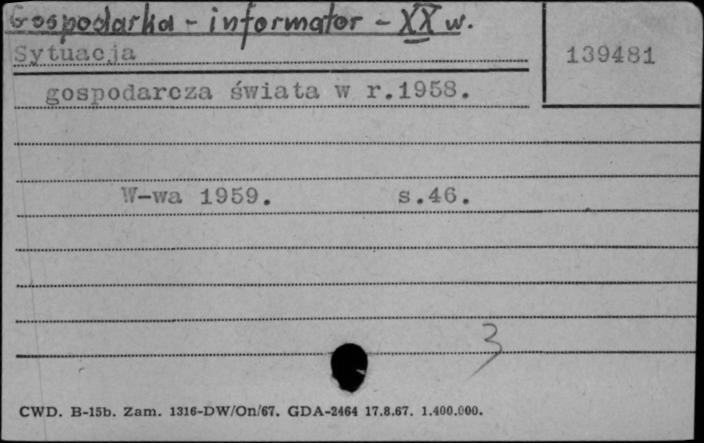 Gospodarka - informator - XX w.
Sytuacja
139481
gospodarcza świata w r.1958.
W-wa 1959. s.46.
3
CWD. B-15b. Zam. 1316-DW/On/67. GDA-2464 17.8.67. 1.400.000.